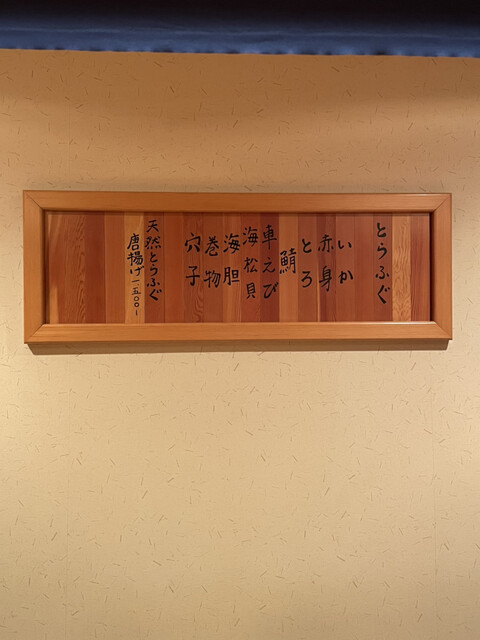 とらふぐ
いか
赤身
とろ
鯖
車えび
海松貝
海胆
巻物
穴子
天然とらふぐ
唐揚げ一五〇〇-